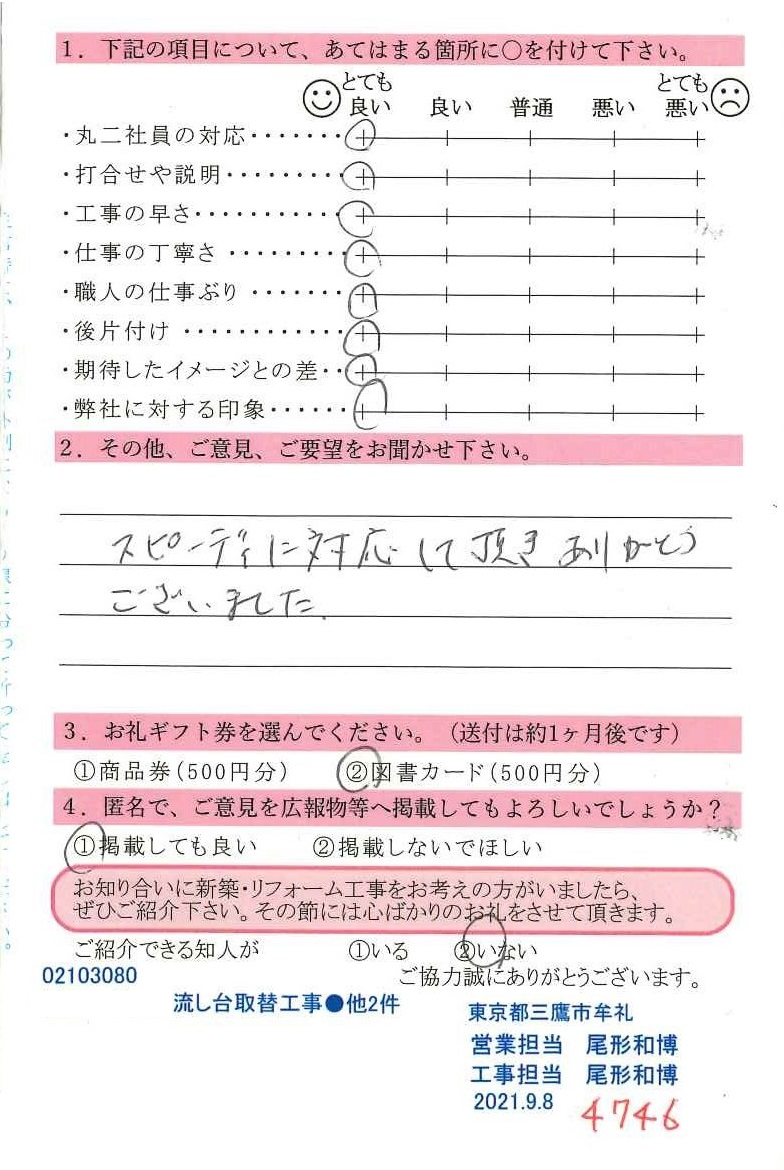 1．下記の項目について、あてはまる箇所に○を付けて下さい。
とても良い 良い 普通 悪い とても悪い
・丸二社員の対応・・・・・・・
・打合せや説明・・・・・・・・・
・工事の早さ・・・・・・・・・・・
・仕事の丁寧さ ・・・・・・・・・
・職人の仕事ぶり ・・・・・・・
・後片付け ・・・・・・・・・・・・
・期待したイメージとの差・・
・弊社に対する印象・・・・・・
2．その他、ご意見、ご要望をお聞かせ下さい。
スピーディに対応して頂きありがとう
ございました.
3．お礼ギフト券を選んでください。（送付は約1ヶ月後です）
①商品券（500円分） ②図書カード（500円分）
4．匿名で、ご意見を広報物等へ掲載してもよろしいでしょうか？
①掲載しても良い ②掲載しないでほしい
お知り合いに新築・リフォーム工事をお考えの方がいましたら、
ぜひご紹介下さい。その節には心ばかりのお礼をさせて頂きます。
ご紹介できる知人が ①いる ②いない
02103080 ご協力誠にありがとうございます。
流し台取替工事●他2件 東京都三鷹市牟礼
営業担当 尾形和博
工事担当 尾形和博
2021.9.8 4746